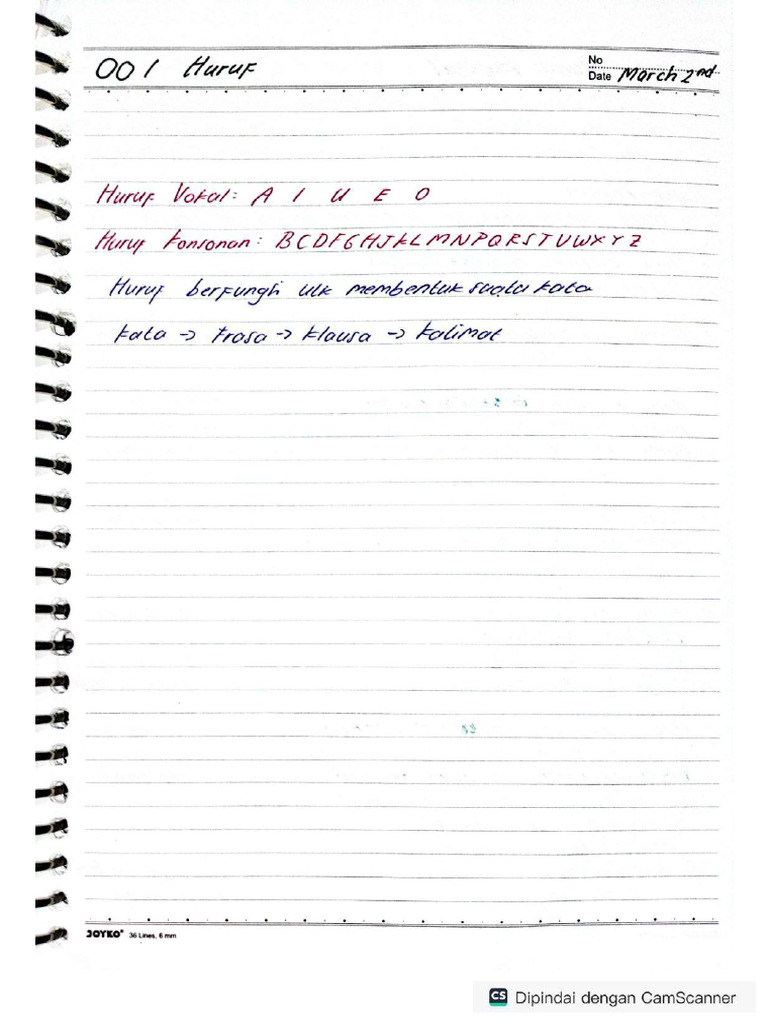 001 Huruf
No
Date March 2nd
Huruf Vokal: A I U E O
Huruf Konsonan: B C D F G H J K L M N P Q R S T V W X Y Z
Huruf berfungsi utk membentuk suatu kata
Kata → Frasa → Klausa → Kalimat
JOYKO 36 Lines, 6 mm
CS Dipindai dengan CamScanner